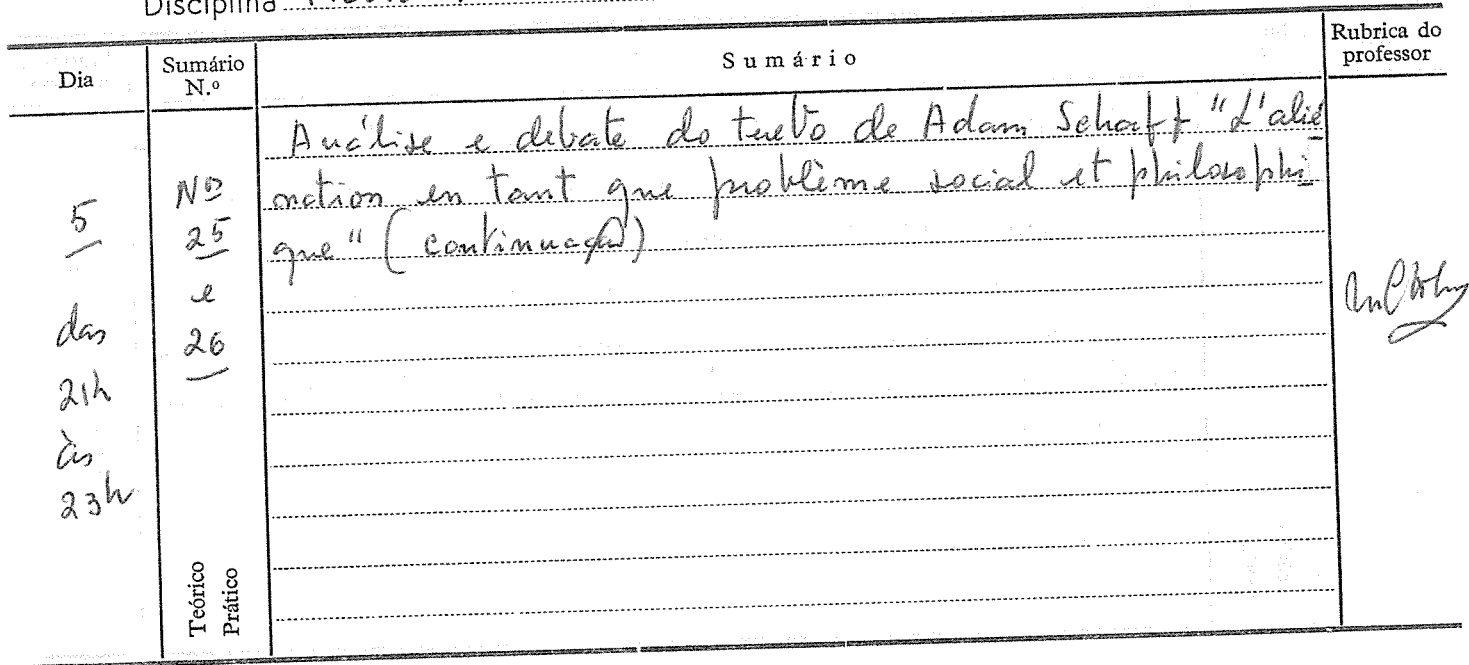 Disciplina
Dia
Sumário N.º
Sumário
Rubrica do professor
5
das
21h
às
23h
Nº
25
e
26
Teórico
Prático
Análise e debate do texto de Adam Schaff "L'alié
nation en tant que problème social et philosophi
que" (continuação)